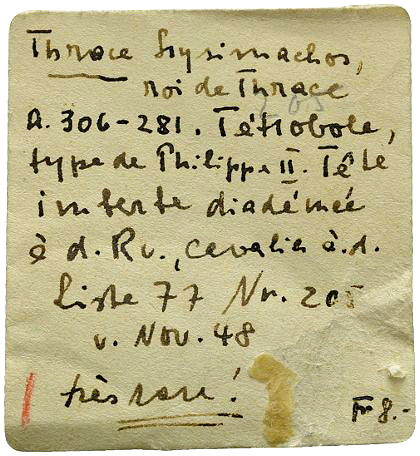 Thrace Lysimachos,
roi de Thrace
A. 306-281. Tétrobole,
type de Philippe II. Tête
imberbe diadémée
à d. Rv., cavalier à.d.
Liste 77 Nr. 205
v. Nov. 48
très rare!
Fr 8.-